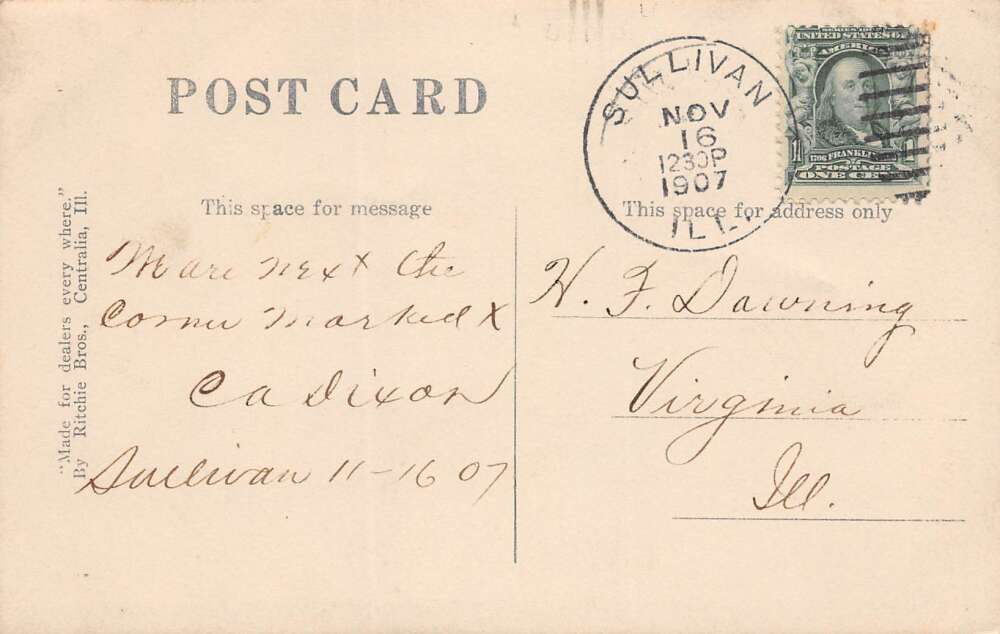 POST CARD
SULLIVAN
NOV
16
1230P
1907
ILL.
SERIES 1902
UNITED STATES OF
AMERICA
1706 FRANKLIN
POSTAGE
1 ONE CENT
"Made for dealers every where."
By Ritchie Bros., Centralia, Ill.
This space for message
We are next the
Corner Marked X
C A Dixon
Sullivan 11-16 07
This space for address only
H. F. Downing
Virginia
Ill.